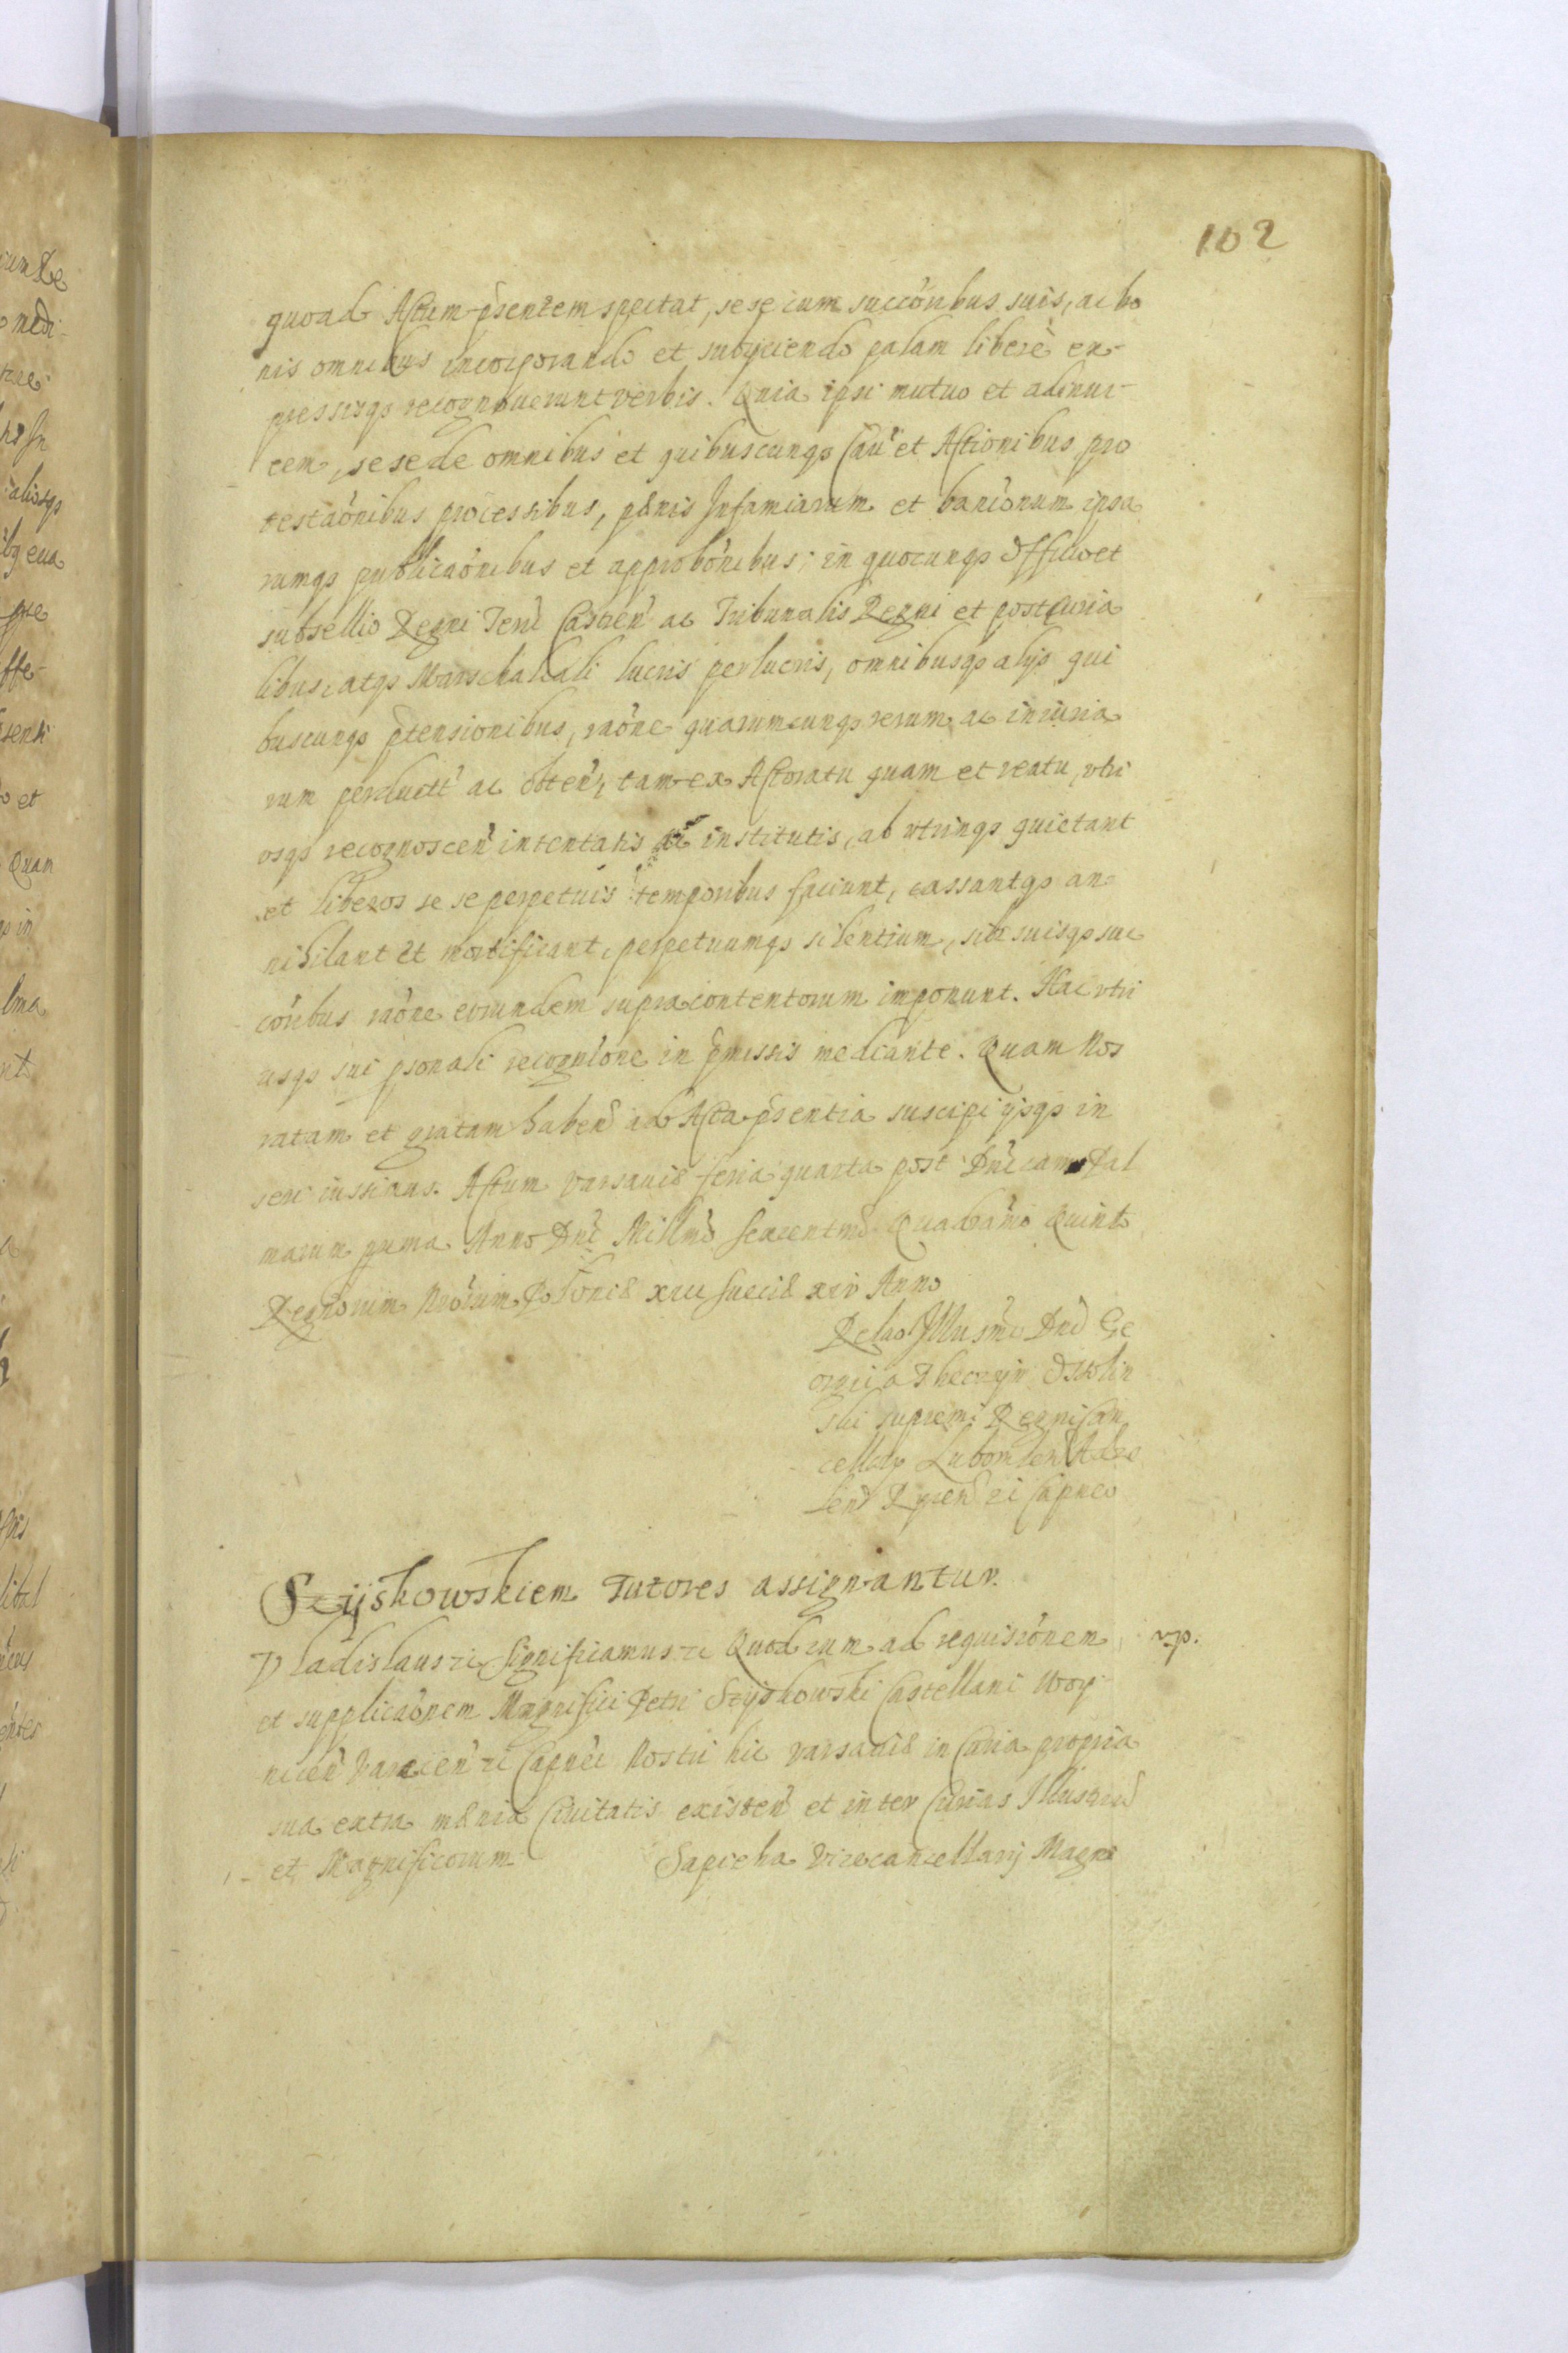 102
quoad Actum pn̄tem spectat, sese cum succōribus suis, ac bo
nis omnibus incorporando et subyciendo palam liberè ex-
pressisqȝ recognouerunt verbis. Quia ipsi mutuo et adinui-
cem, sese de omnibus et quibuscunqȝ Cāū et Actionibus pro
testaōnibus processibus, pœnis Infamiarum et bancionum ipsa
rumqȝ publicaōnibus et approbōnibus; in quocunqȝ Officio et
subsellio Regni Terrē Castreñ ac Tribunalis Regni et postcuria
libus, atqȝ Marschalcali lucris perlucris, omnibusqȝ alijs qui
buscunqȝ p̄tensionibus, raōne quarumcunqȝ rerum ac iniuria
rum perductĩ ac obteñ, tam ex Actoratu quam et reatu, vtri
osqȝ recognosceñ intentatis ac institutis, ab vtrinqȝ quietant
et liberos se se perpetuis temporibus faciunt, cassantqȝ an-
nihilant et mortificant, perpetuumqȝ silentium, sibi suisqȝ suc
cōribus raōne eorundem supracontentorum imponunt. Hac vtri
usqȝ sui p̄sonali recognione in p̄missis mediante. Quam Nos
ratam et gratam habeñ ad Acta p̄sentia suscipi ijsqȝ in
seri iussimus. Actum Varsauiæ feria quarta post Dn̄icam Pal
marum pxma Anno Dn̄i Millmo sexcentmo Quadrāmo Quinto
Regnorum Nrōrum Poloniæ XIII Sueciæ XIV Anno
Relāo Illusm̄i Dn̄i Ge
orgii a Theczyn Ossolin
ski supremi Regni Can
cellarij Lubomleñ Adze
leñ Ryceñ ec Capnei
Szijszkowskiem Tutores assignantur.
Vladislaus ec Significamus ec Quod cum ad requisiōnem
et supplicaōnem Magnifici Petri Szyszkowski Castellani Woy
niceñ Vareceñ ec Capnei Nostri hic Varsauiæ in Curia propria
sua extra mœnia Ciuitatis existeñ et inter Curias Illustriū
et Magnificorum Sapieha Vicecancellarij Magni